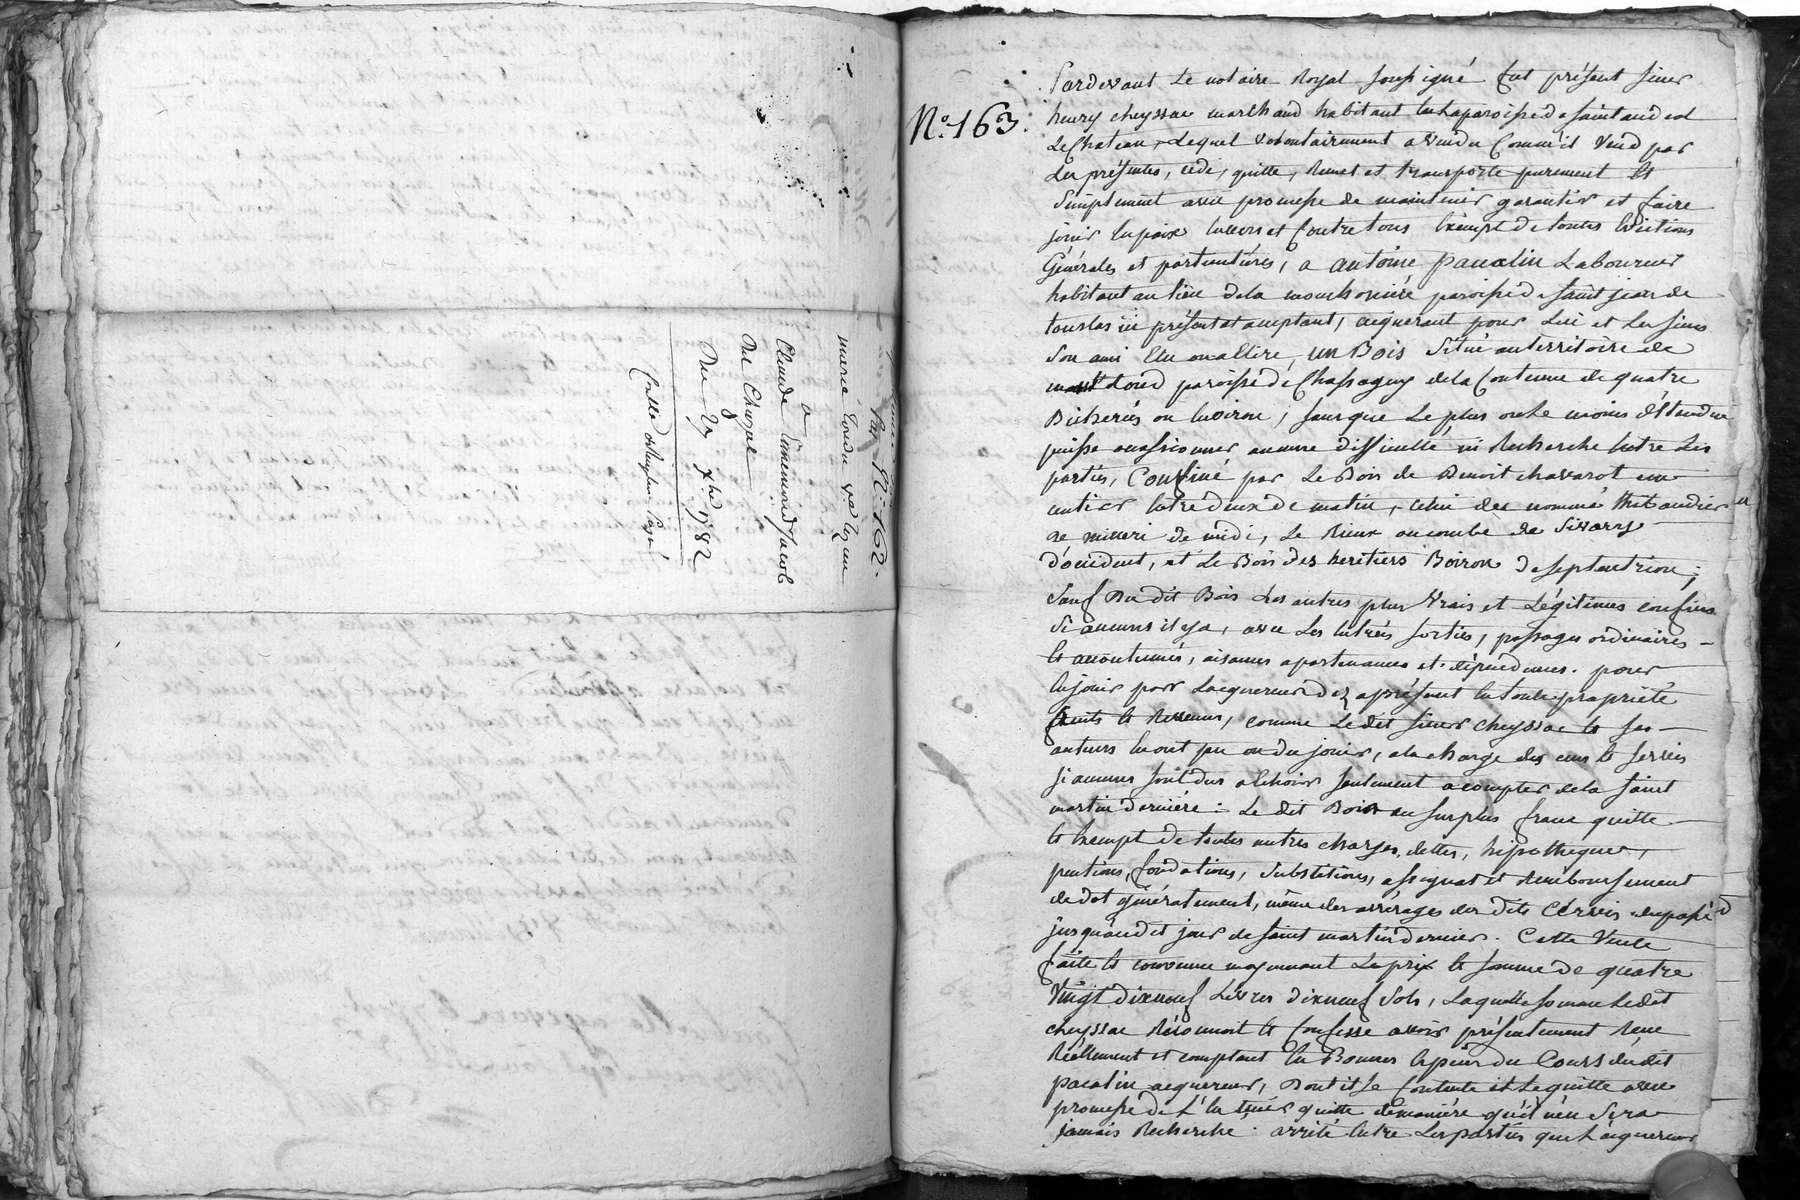 N.º 162.
Claude Simeond Jacob
Du Chazal
Du 29 Xbre 1782
Con.lé du Raynfeu Payé
N.º 163.
Pardevant Le notaire Royal soussigné fut présent sieur
henry cheyssac marchand habitant en la paroisse de saint andeol
Le Chateau, Lequel volontairement a vendu Comme il Vend par
Les présentes, cede, quitte, Remet et transporte purement Et
Simplement avec promesse de maintenir garantir et faire
jouir En paix Envers et Contre tous Exempt de toutes Evictions
Générales et particulières, a antoine pacalin Laboureur
habitant au lieu de la mouchonière paroisse de saint jean de
touslas ici présent et acceptant, acquerant pour Lui et Les siens
Son ami Elu ou a Elire, un Bois Situé au territoire de
mont Lond paroisse de Chassagny de la Contenue de quatre
Bicherées ou Environ, sans que Le plus ou Le moins d'Etendue
puisse occassionner aucune difficulté ni Recherche Entre Les
parties, Confiné par Le Bois de Benoit chavarot un
sentier Entredeux de matin, celui des nommé thibaudier
de milleri de midi, Le Rieux ou combe de Sivarry
d'occident, et Le Bois des heretiers Boiron de septentrion;
Sauf Du dit Bois Les autres plus Vrais et Légitimes confins
Si aucuns il y a, avec Les Entrées sorties, passages ordinaires
Et accoutumés, aisances apartenances et dépendences. pour
En jouir par Lacquereur dez aprésent En toute propriété
fruits Et Revenus, comme Ledit sieur cheyssac Et ses
auteurs En ont pu ou du jouir, a la charge des cens Et servis
si aucuns sont dus a Echoir seulement a compter de la saint
martin dernière: Le dit Bois au surplus franc quitte
Et Exempt de toutes autres charges, dettes, hipotheques,
pentions, fondations, Substitions, assignat et Remboursement
de dot généralement, même des arrérages des dits Cerveis du passé
jusqu'audit jour de saint martin dernier. Cette Vente
faite Et convenue moyennant Le prix Et somme de quatre
Vingt dixneuf Livres dixneuf Sols, Laquelle somme Ledit
cheyssac Réconnoit Et Confesse avoir présentement Recue
Réellement et comptant En Bonnes Espèces du Cours dudit
pacalin acquereur, Dont il se Contente et Le quitte avec
promesse de L'En tenir quitte de manière qu'il n'en Sera
jamais Recherché. arrêté Entre Les parties que L'acquereur